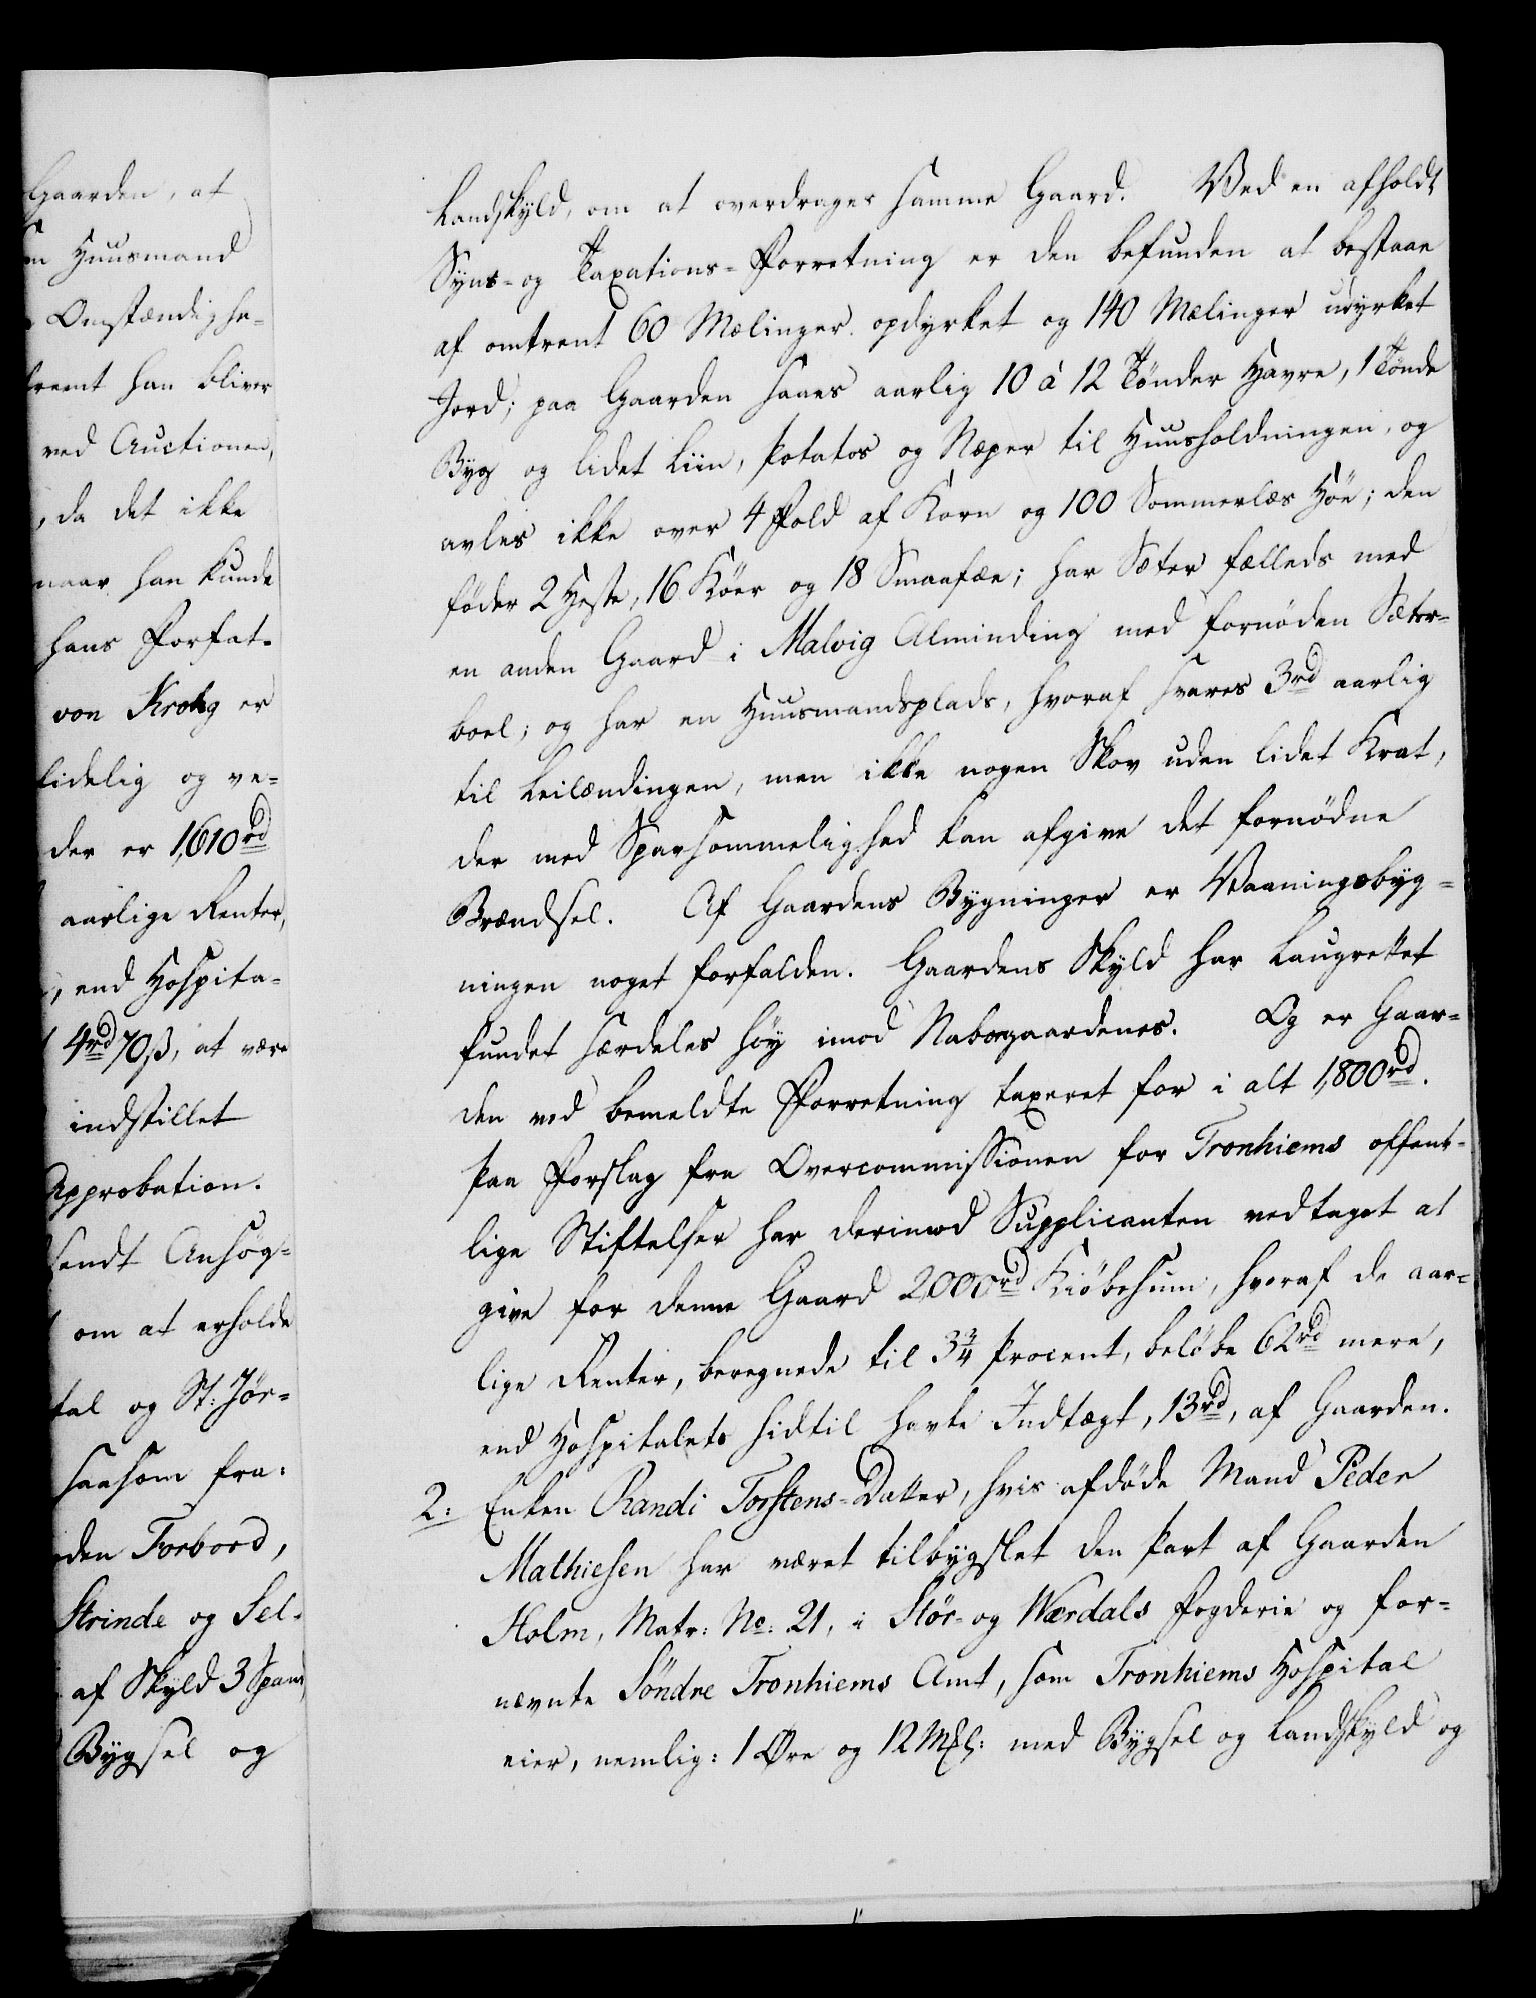 Gaarden, at
en Huusmand
Omstændighe-
fremt han bliver
ved Auctionen,
, da det ikke
naar han kunde
hans Forfat-
von Krohg er
lidelig og ve-
der er 1,610rd
aarlige Renter,
, end Hospita-
4rd 70 ß, at være
indstillet
Approbation.
sendt Ansøg-
om at erholde
tal og St: Jør-
saasom fra:
den Torboed,
Strinde og Sel-
af Skyld 3 Spand
Bygsel og
Landskyld, om at overdrages samme Gaard. Ved en afholdt
Syns- og Taxations-Forretning er den befunden at bestaae
af omtrent 60 Mælinger opdyrket og 140 Mælinger udyrket
Jord; paa Gaarden saaes aarlig 10 à 12 Tønder Havre, 1 Tønde
Byg og lidet Liin, Potatos og Næper til Huusholdningen, og
avles ikke over 4 Fold af Korn og 100 Sommerlæs Høe; den
føder 2 Heste, 16 Køer og 18 Smaafæe; har Sæter fælleds med
en anden Gaard i Malvig Alminding med fornøden Sæter-
boel; og har en Huusmandsplads, hvoraf svares 3rd aarlig
til Leilændingen, men ikke nogen Skov uden lidet Krat,
der med Sparsommelighed kan afgive det fornødne
Brændsel. Af Gaardens Bygninger er Vaaningsbyg-
ningen noget forfalden. Gaardens Skyld har Laugrettet
fundet særdeles høy imod Nabogaardenes. Og er Gaar-
den ved bemeldte Forretning taxeret for i alt 1,800rd.
Paa Forslag fra Overcommissionen for Tronhiems offent-
lige Stiftelser har derimod Supplicanten vedtaget at
give for denne Gaard 2,000rd Kiøbesum, hvoraf de aar-
lige Renter, beregnede til 3¾ Procent, beløbe 62rd mere,
end Hospitalets hidtil havte Indtægt, 13rd, af Gaarden.
2: Enken Randi Torstens-Datter, hvis afdøde Mand Peder
Mathiesen har været tilbygslet den Part af Gaarden
Holm, Matr: No: 21, i Stør- og Værdals Fogderie og for-
nævnte Søndre Tronhiems Amt, som Tronhiems Hospital
eier, nemlig: 1 Øre og 12 Mkl: med Bygsel og Landskyld og